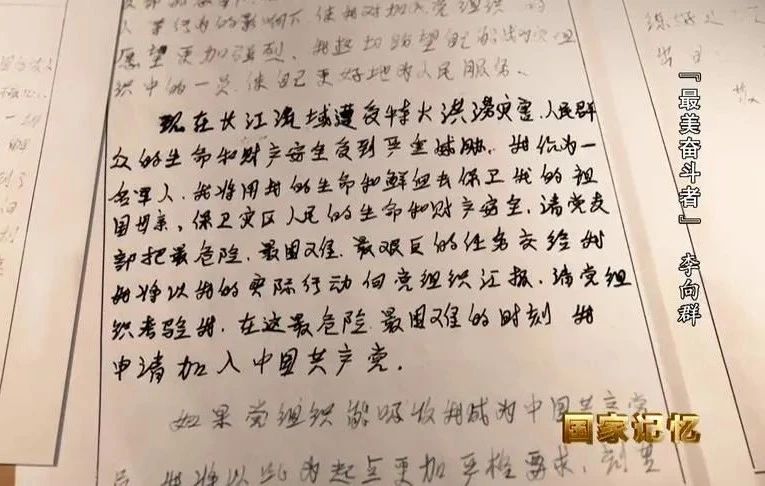 愿望更加强烈，我迫切盼望自己能成为党组
织中的一员，使自己更好地为人民服务。
现在长江流域遭受特大洪涝灾害，人民群
众的生命和财产安全受到严重威胁，我作为一
名军人，我将用我的生命和鲜血去保卫我的祖
国母亲，保卫灾区人民的生命和财产安全，请党支
部把最危险、最困难、最艰巨的任务交给我
我将以我的实际行动向党组织汇报，请党组
织考验我，在这最危险最困难的时刻 我
申请加入中国共产党。
如果党组织能吸收我成为中国共产党
我将以此为起点更加严格要求，
『最美奋斗者』 李向群
国家记忆